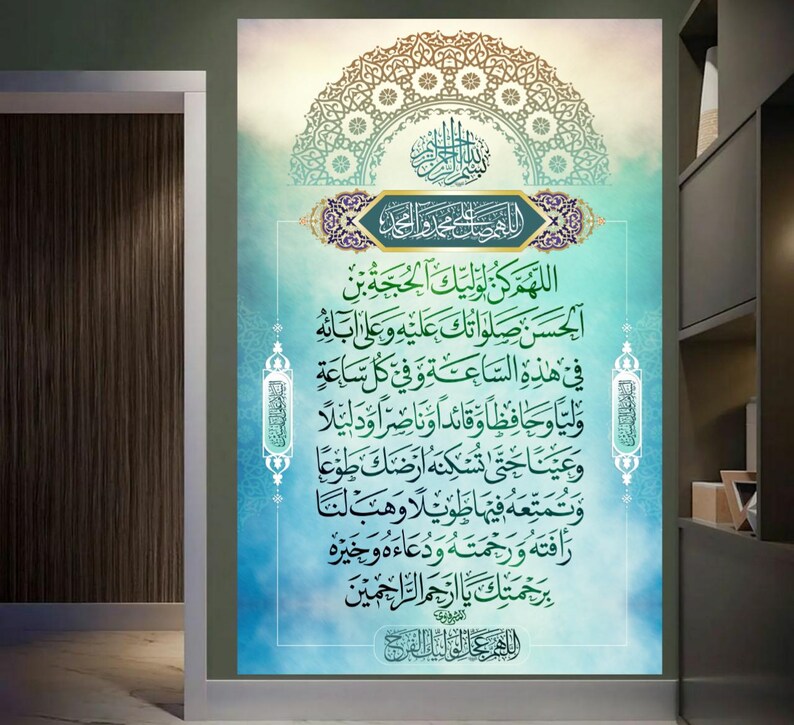 بسم الله الرحمن الرحيم
اللهم صل على محمد وال محمد
اَللّهُمَّ كُنْ لِوَلِيِّكَ ٱلْحُجَّةِ بْنِ
ٱلْحَسَنِ صَلَواتُكَ عَلَيْهِ وَعَلىٰ آبائِهِ
فِي هٰذِهِ السّاعَةِ وَفِي كُلِّ ساعَةٍ
وَلِيّاً وَحافِظاً وَقائِداً وَناصِراً وَدَلِيلاً
وَعَيْناً حَتّىٰ تُسْكِنَهُ أَرْضَكَ طَوْعاً
وَتُمَتِّعَهُ فِيها طَوِيلاً وَهَبْ لَنا
رَأْفَتَهُ وَرَحْمَتَهُ وَدُعاءَهُ وَخَيْرَهُ
بِرَحْمَتِكَ يا أَرْحَمَ الرّاحِمِينَ
اللهم عجل لوليك الفرج